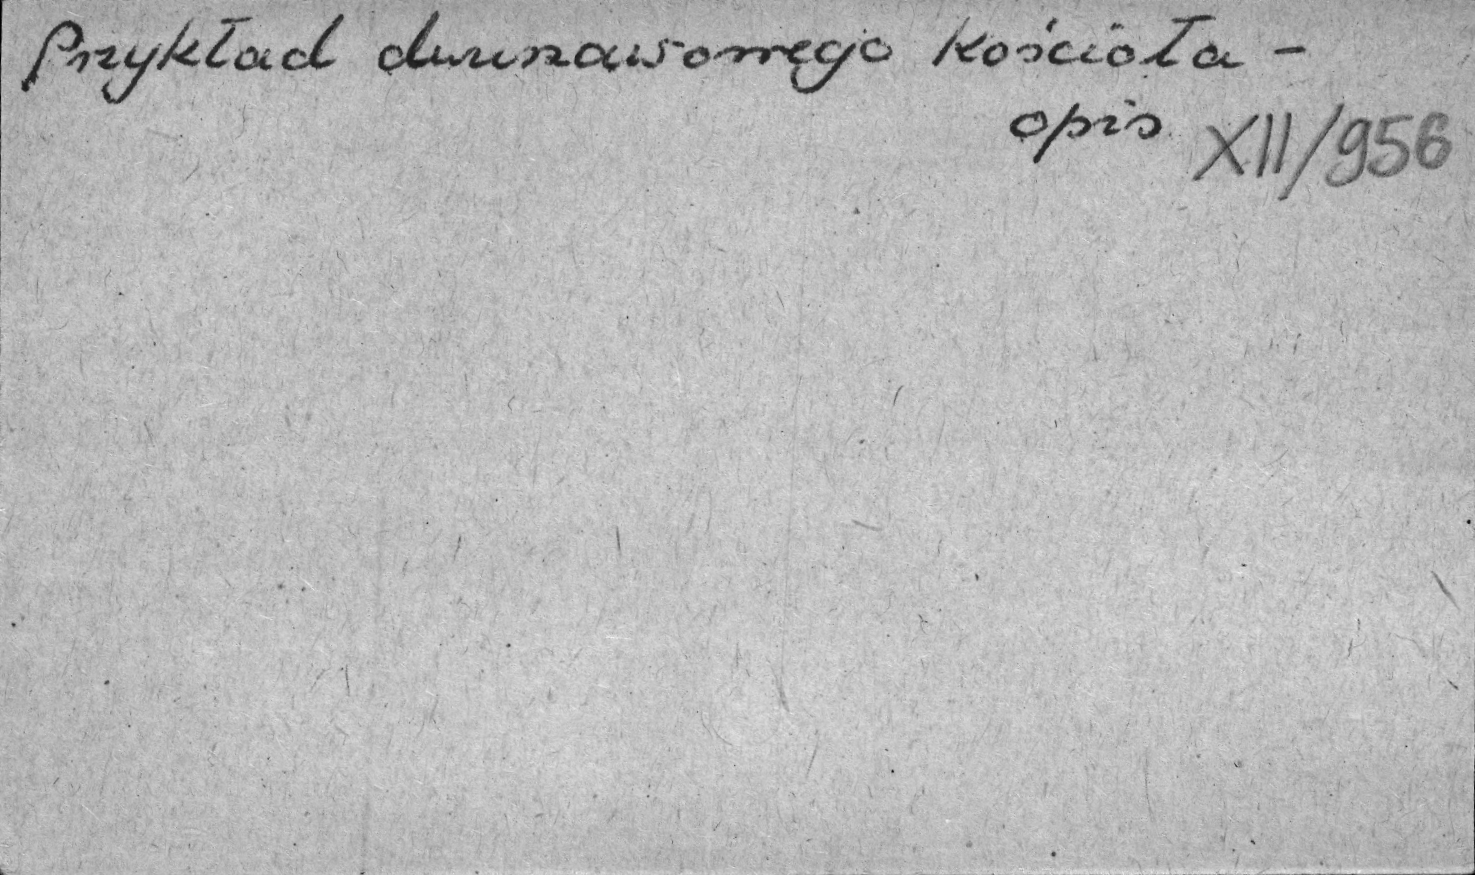 Przykład dwunawowego kościoła -
opis XII/956